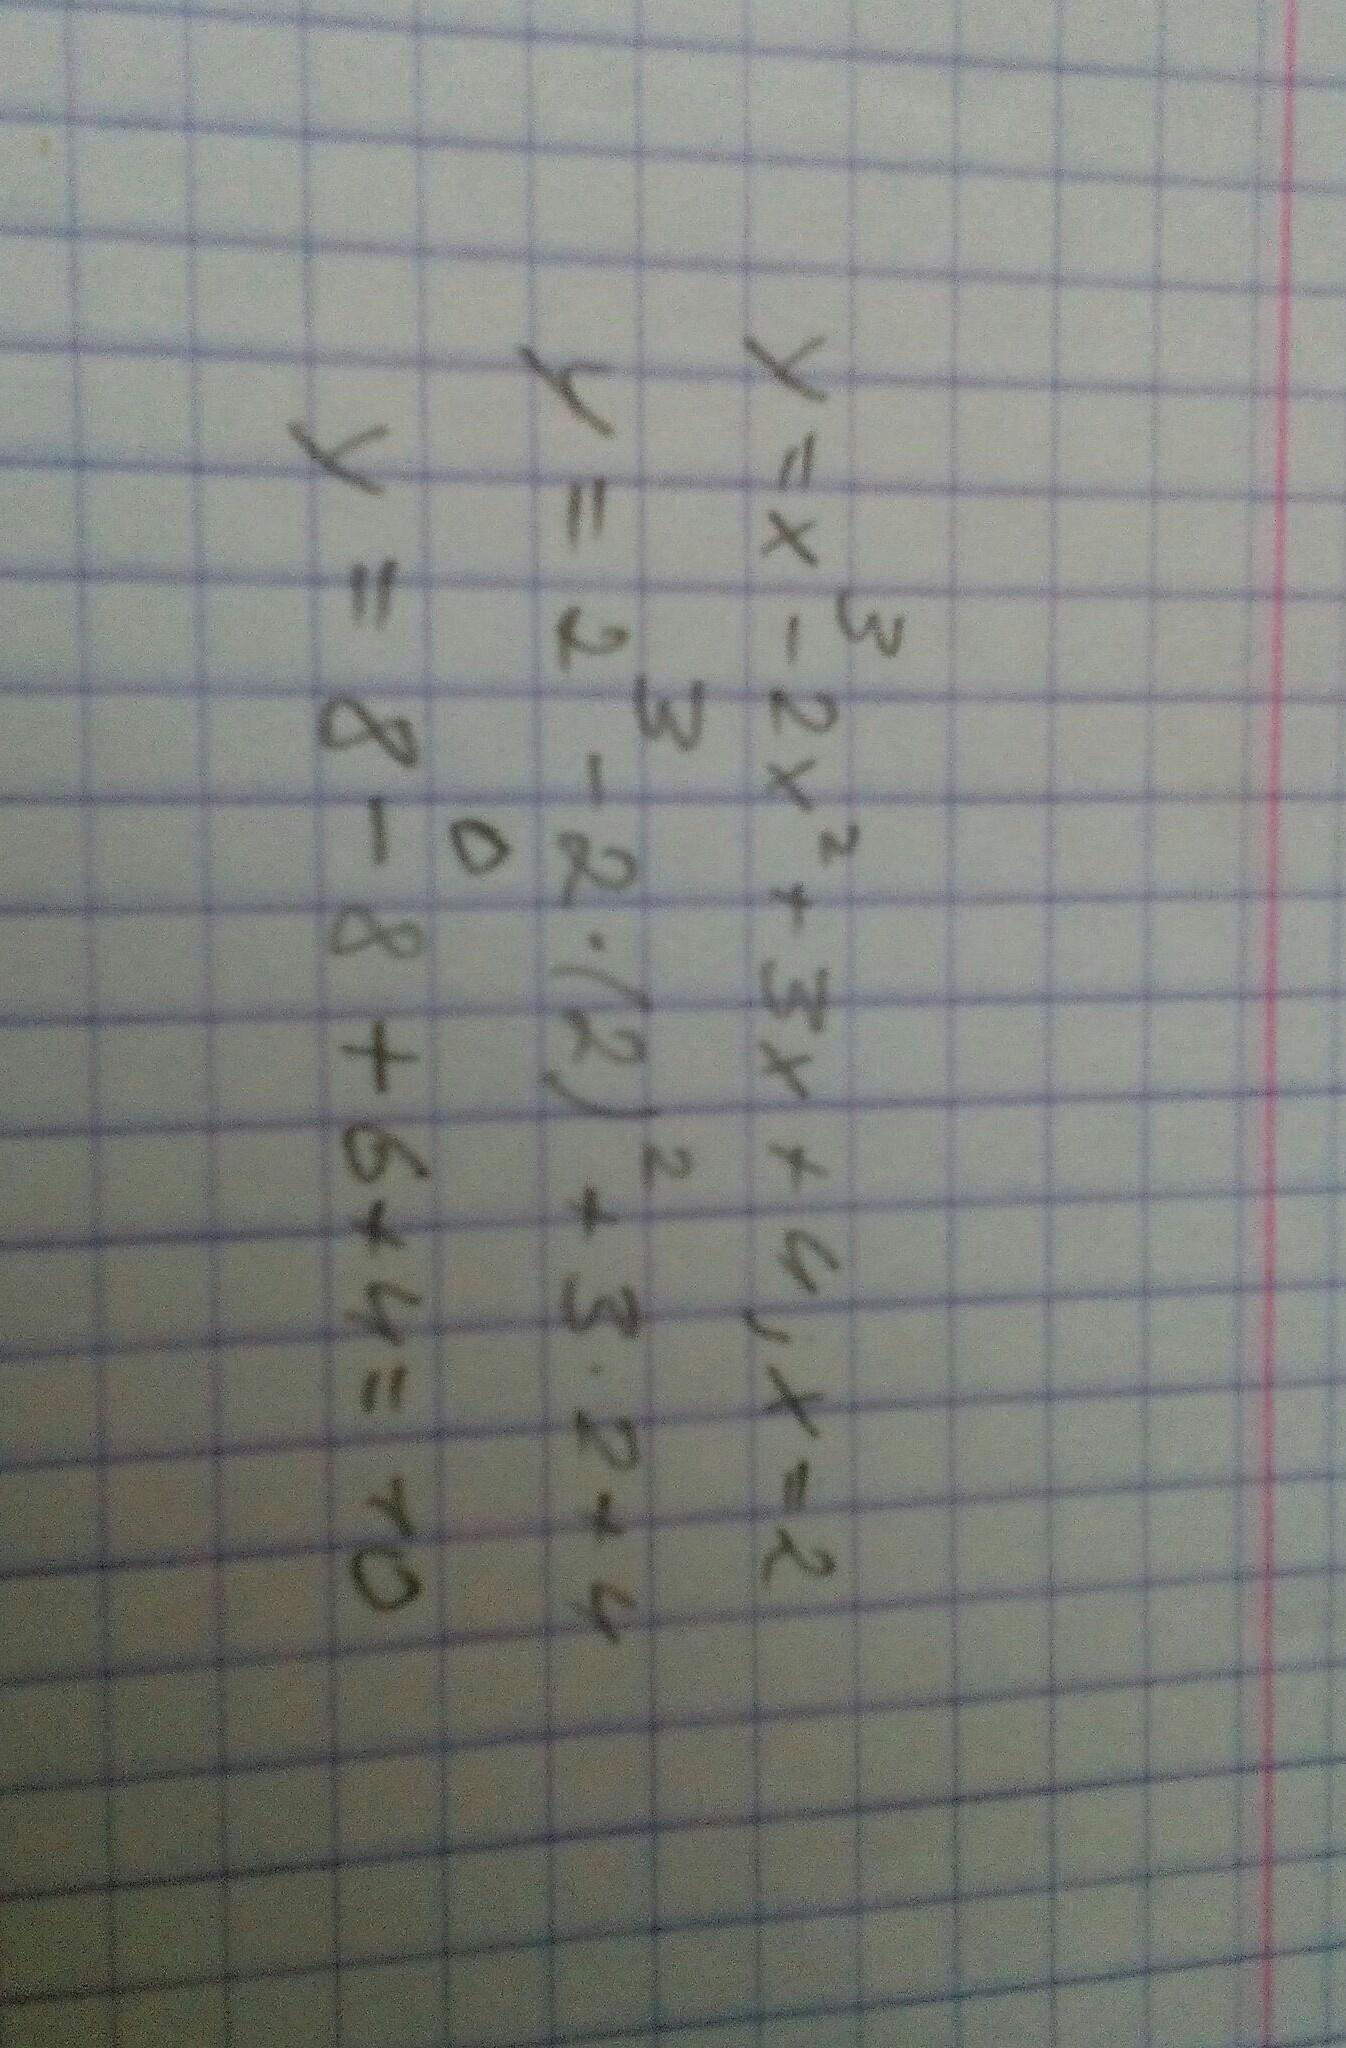 y = x³ - 2x² + 3x + 4, x = 2
y = 2³ - 2·(2)² + 3·2 + 4
0
y = 8 - 8 + 6 + 4 = 10